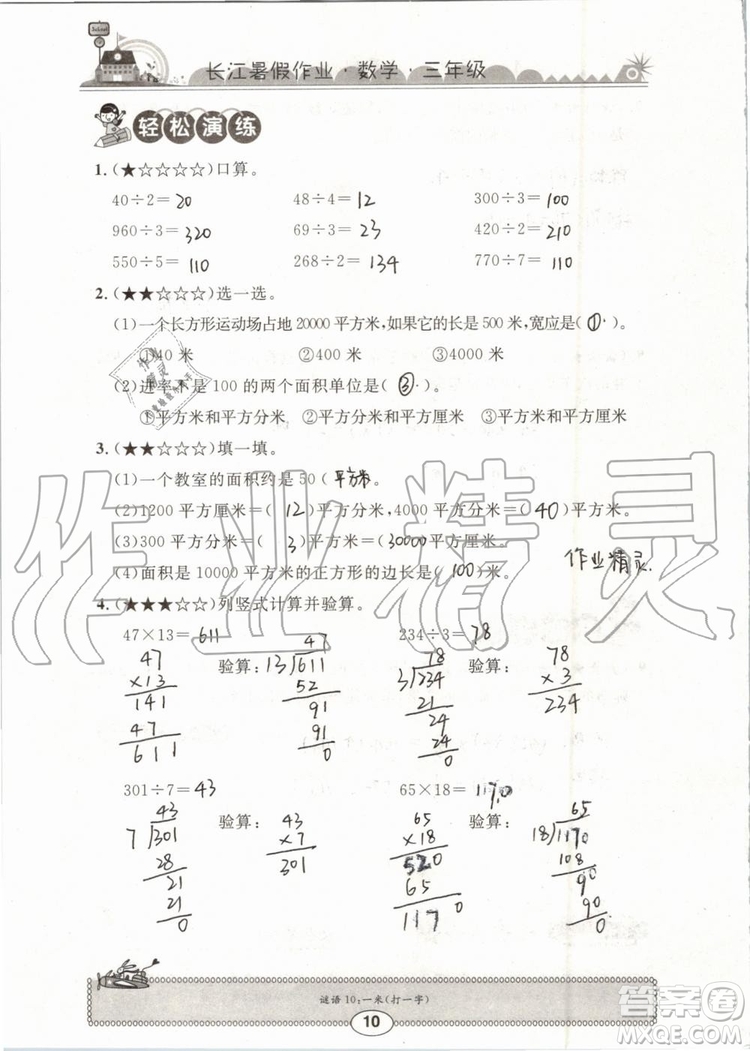 School
长江暑假作业·数学·三年级
轻松演练
1.(★☆☆☆☆)口算。
40÷2=20 48÷4=12 300÷3=100
960÷3=320 69÷3=23 420÷2=210
550÷5=110 268÷2=134 770÷7=110
2.(★★☆☆☆)选一选。
(1)一个长方形运动场占地20000平方米,如果它的长是500米,宽应是(①)。
①40米 ②400米 ③4000米
(2)进率不是100的两个面积单位是(③)。
①平方米和平方分米 ②平方分米和平方厘米 ③平方米和平方厘米
3.(★★☆☆☆)填一填。
(1)一个教室的面积约是50(平方米)。
(2)1200平方厘米=(12)平方分米,4000平方分米=(40)平方米。
(3)300平方分米=(3)平方米=(30000)平方厘米。
作业精灵.
(4)面积是10000平方米的正方形的边长是(100)米。
4.(★★★☆☆)列竖式计算并验算。
47×13=611 234÷3=78
47 验算: 47 78 验算: 78
×13 13 611 3 234 ×3
141 52 21 234
47 91 24
611 91 24
0 0
301÷7=43 65×18=1170
43 验算: 43 65 验算: 65
7 301 ×7 ×18 18 1170
28 301 520 108
21 65 90
21 1170 90
0 0
谜语10:一米(打一字)
10
作业精灵
答案圈
MXQE.COM